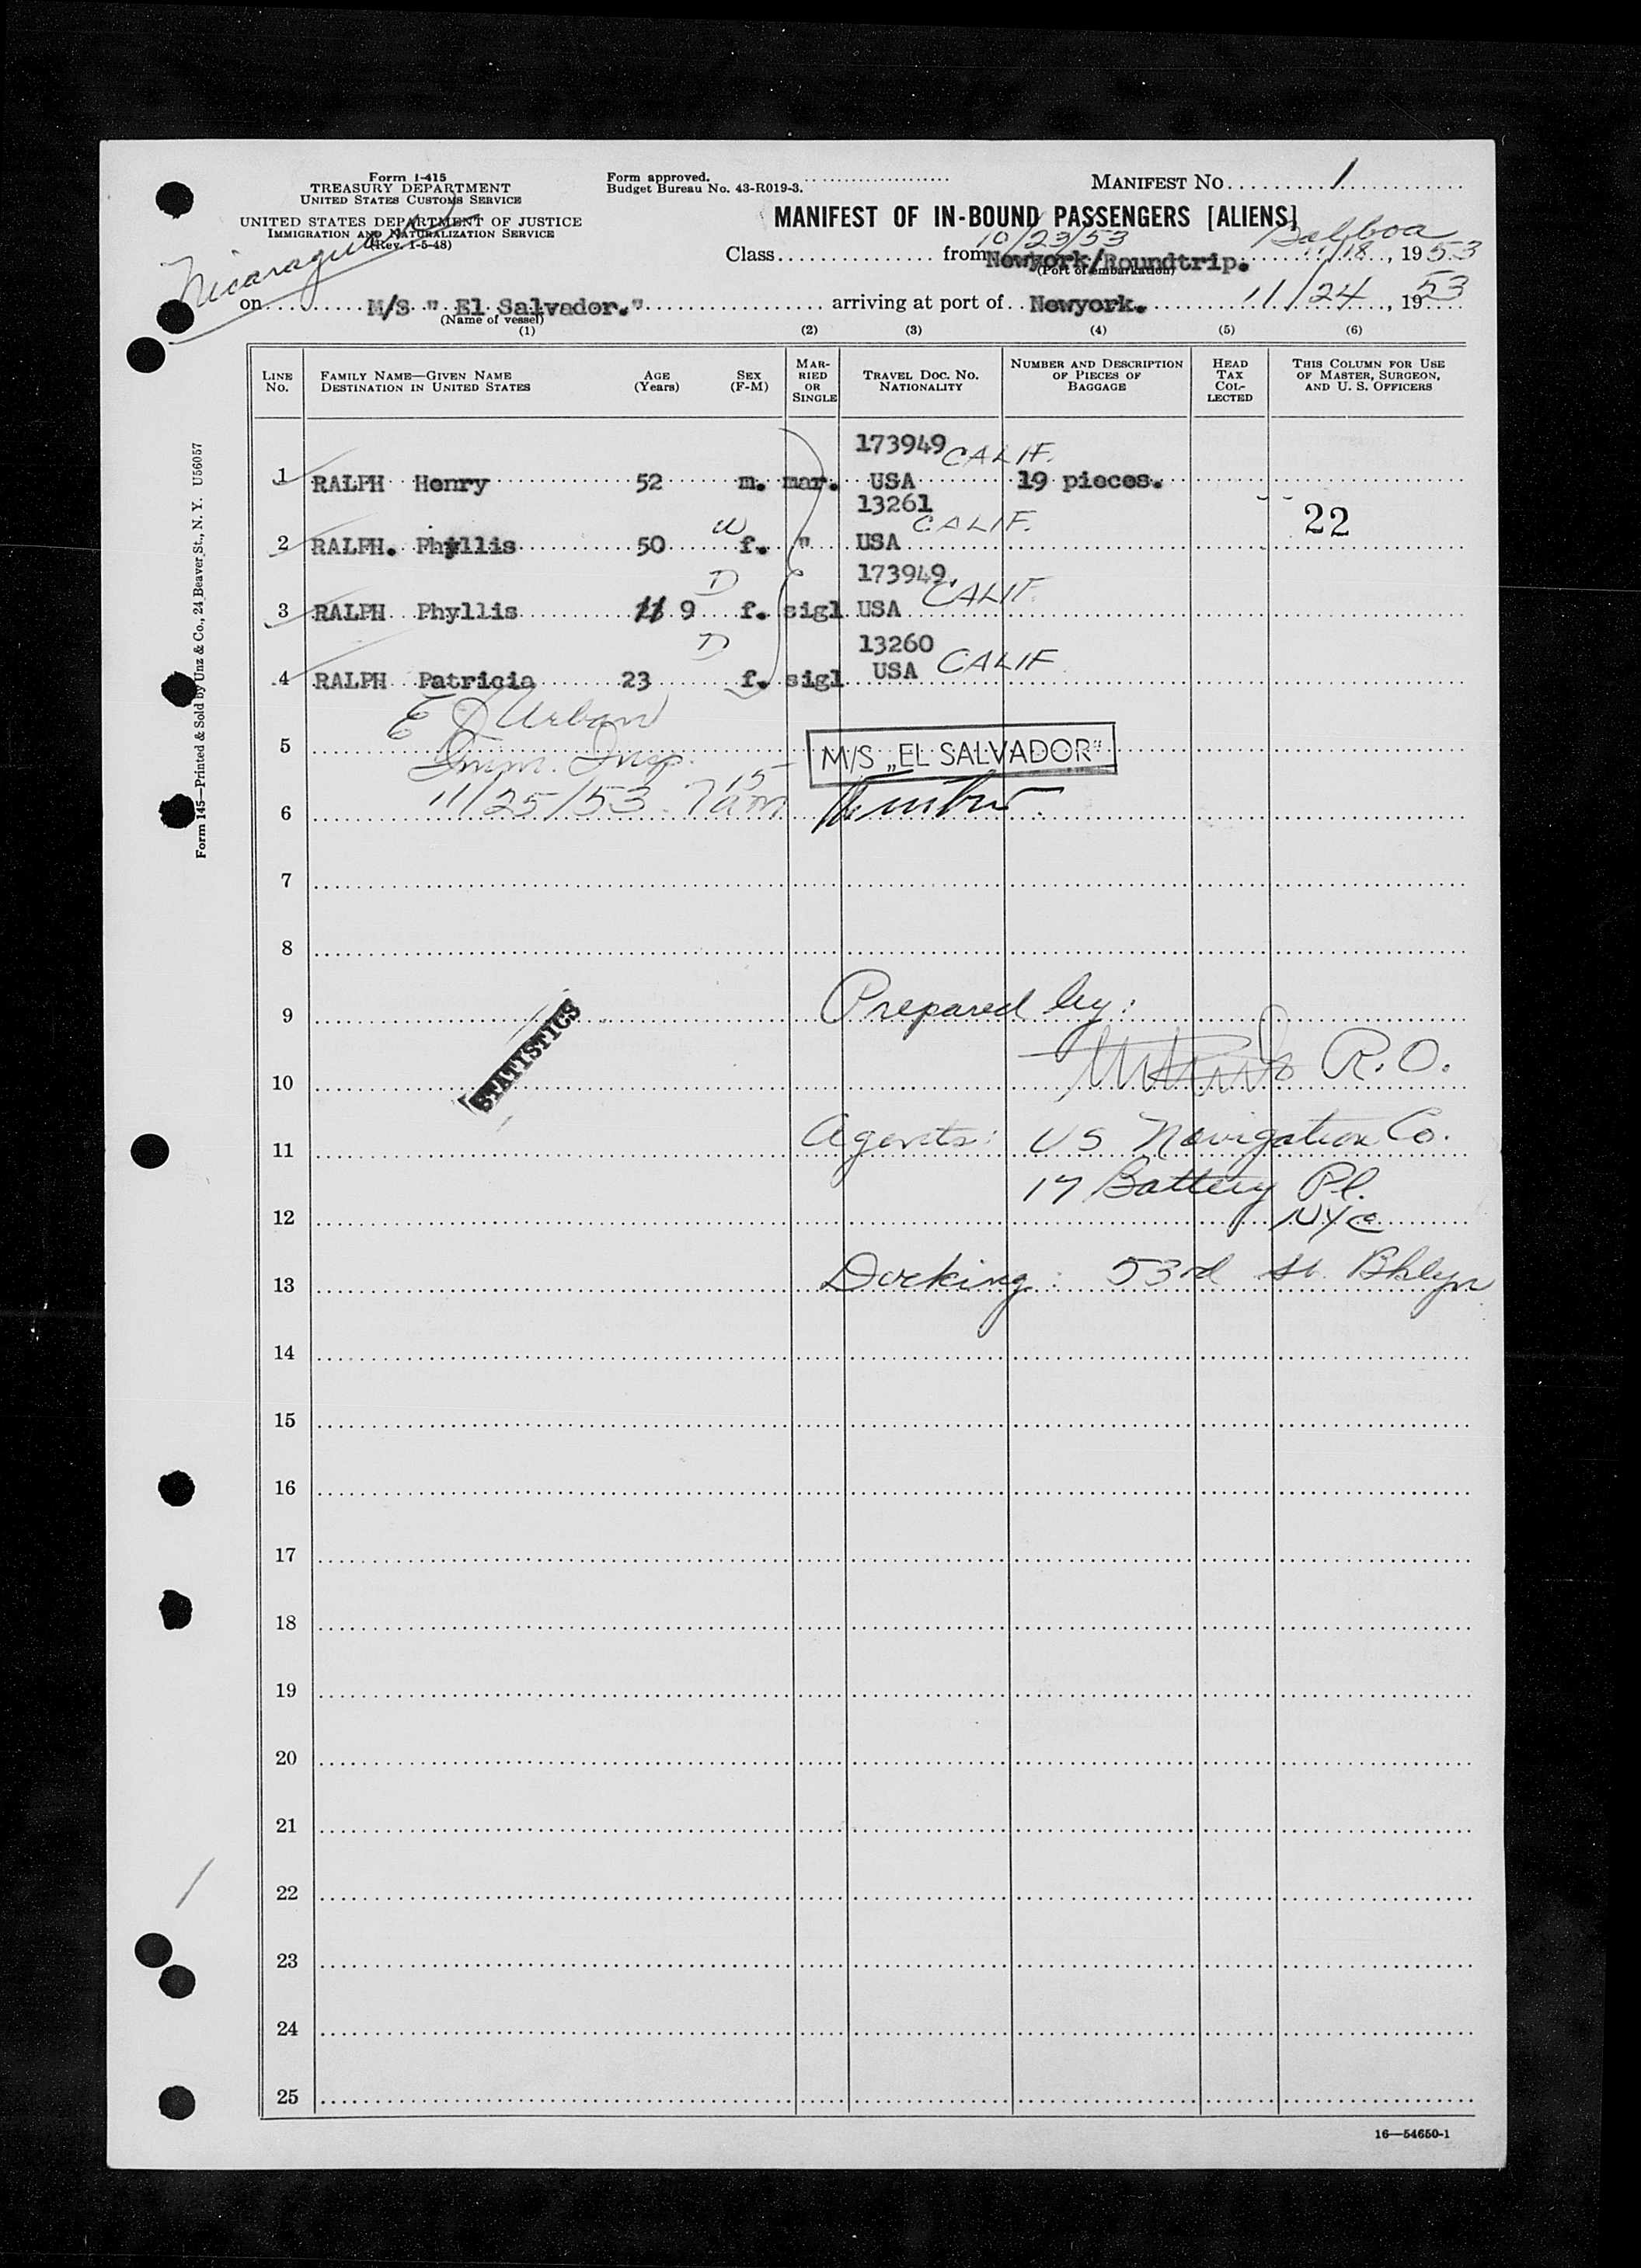 Form I-415
TREASURY DEPARTMENT
UNITED STATES CUSTOMS SERVICE
UNITED STATES DEPARTMENT OF JUSTICE
IMMIGRATION AND NATURALIZATION SERVICE
(Rev. 1-5-48)
Form approved.
Budget Bureau No. 43-R019-3.
MANIFEST NO. 1
MANIFEST OF IN-BOUND PASSENGERS [ALIENS]
10/23/53 Balboa
Class from Newyork/Roundtrip. 11/18, 1953
(Port of embarkation)
on M/S " El Salvador." arriving at port of Newyork. 11/24, 1953
(Name of vessel)
(1) (2) (3) (4) (5) (6)
LINE NO. FAMILY NAME—GIVEN NAME DESTINATION IN UNITED STATES AGE (Years) SEX (F-M) MARRIED OR SINGLE TRAVEL DOC. NO. NATIONALITY NUMBER AND DESCRIPTION OF PIECES OF BAGGAGE HEAD TAX COLLECTED THIS COLUMN FOR USE OF MASTER, SURGEON, AND U. S. OFFICERS
173949 CALIF.
1 RALPH Henry 52 m. mar. USA 19 pieces.
13261 CALIF. 22
2 RALPH. Phyllis 50 W f. " USA
173949. CALIF.
3 RALPH Phyllis 11 9 D f. sigl USA
13260
4 RALPH Patricia 23 D f. sigl USA CALIF
E J Urban
5 Imm. Insp. M/S „EL SALVADOR"
6 11/25/53 7 15 am
7
8
Prepared by:
9
10 R.O.
STATISTICS
11 Agents: US Navigation Co.
17 Battery Pl.
12 NYC
13 Docking: 53rd St. Bklyn
14
15
16
17
18
19
20
21
22
23
24
25
16—54650-1
Form 145—Printed & Sold by Unz & Co., 24 Beaver St., N. Y. U56057